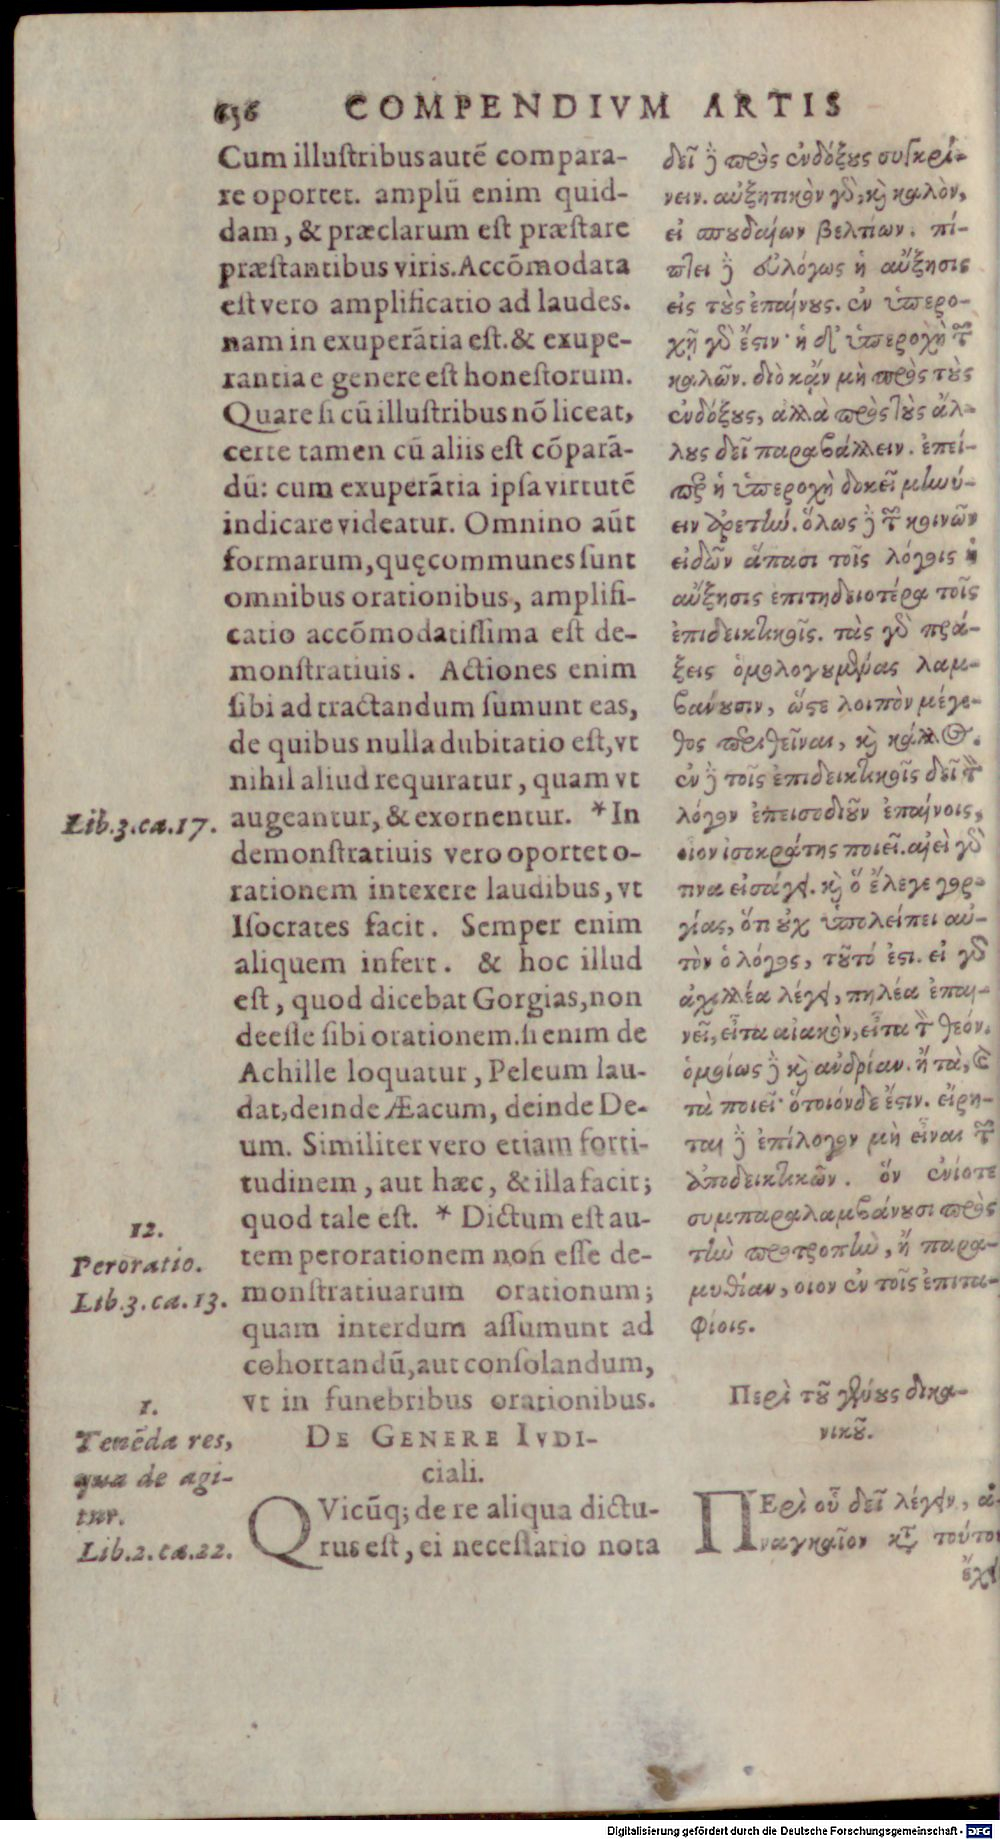 636 COMPENDIVM ARTIS
Cum illustribus autē compara-
re oportet. amplū enim quid-
dam, & præclarum est præstare
præstantibus viris. Accōmodata
est vero amplificatio ad laudes.
nam in exuperātia est. & exupe-
rantia e genere est honestorum.
Quare si cū illustribus nō liceat,
certe tamen cū aliis est cōparā-
dū: cum exuperātia ipsa virtutē
indicare videatur. Omnino aūt
formarum, quę communes sunt
omnibus orationibus, amplifi-
catio accōmodatissima est de-
monstratiuis. Actiones enim
sibi ad tractandum sumunt eas,
de quibus nulla dubitatio est, vt
nihil aliud requiratur, quam vt
Lib.3.ca.17.
augeantur, & exornentur. * In
demonstratiuis vero oportet o-
rationem intexere laudibus, vt
Isocrates facit. Semper enim
aliquem infert. & hoc illud
est, quod dicebat Gorgias, non
deesse sibi orationem. si enim de
Achille loquatur, Peleum lau-
dat, deinde Æacum, deinde De-
um. Similiter vero etiam forti-
tudinem, aut hæc, & illa facit;
12.
quod tale est. * Dictum est au-
Peroratio.
tem perorationem non esse de-
Lib.3.ca.13.
monstratiuarum orationum;
quam interdum assumunt ad
cohortandū, aut consolandum,
vt in funebribus orationibus.
DE GENERE IVDI-
ciali.
1.
Tenēda res,
qua de agi-
tur.
Lib.2.ca.22.
QVicūq; de re aliqua dictu-
rus est, ei necessario nota
δεῖ δὲ πρὸς ἐνδόξους συγκρί-
νειν. αὐξητικὸν γὰρ, καὶ καλὸν,
εἰ σπουδαίων βελτίων. πί-
πτει δὲ εὐλόγως ἡ αὔξησις
εἰς τοὺς ἐπαίνους. ἐν ὑπερο-
χῇ γάρ ἐστιν· ἡ δ' ὑπεροχὴ τῶν
καλῶν. διὸ κἂν μὴ πρὸς τοὺς
ἐνδόξους, ἀλλὰ πρὸς τοὺς ἄλ-
λους δεῖ παραβάλλειν. ἐπεί-
περ ἡ ὑπεροχὴ δοκεῖ μηνύ-
ειν ἀρετήν. ὅλως δὲ τῶν κοινῶν
εἰδῶν ἅπασι τοῖς λόγοις ἡ
αὔξησις ἐπιτηδειοτέρα τοῖς
ἐπιδεικτικοῖς. τὰς γὰρ πρά-
ξεις ὁμολογουμένας λαμ-
βάνουσιν, ὥστε λοιπὸν μέγε-
θος περιθεῖναι, καὶ κάλλος.
ἐν δὲ τοῖς ἐπιδεικτικοῖς δεῖ τὸν
λόγον ἐπεισοδιοῦν ἐπαίνοις,
οἷον ἰσοκράτης ποιεῖ. αἰεὶ γὰρ
τινα εἰσάγει. καὶ ὃ ἔλεγε γορ-
γίας, ὅτι οὐχ ὑπολείπει αὐ-
τὸν ὁ λόγος, τοῦτό ἐστι. εἰ γὰρ
ἀχιλλέα λέγει, πηλέα ἐπαι-
νεῖ, εἶτα αἰακὸν, εἶτα τὸν θεόν.
ὁμοίως δὲ καὶ ἀνδρίαν. ἢ τὰ, καὶ
τὰ ποιεῖ· ὃ τοιόνδε ἐστιν. εἴρη-
ται δὲ ἐπίλογον μὴ εἶναι τῶν
ἀποδεικτικῶν. ὃν ἐνίοτε
συμπαραλαμβάνουσι πρὸς
τὴν προτροπὴν, ἢ παρα-
μυθίαν, οἷον ἐν τοῖς ἐπιτα-
φίοις.
Περὶ τοῦ γένους δικα-
νικοῦ.
ΠΕρὶ οὗ δεῖ λέγειν, ἀ-
ναγκαῖον κατὰ τούτου
ἔχει
Digitalisierung gefördert durch die Deutsche Forschungsgemeinschaft - DFG